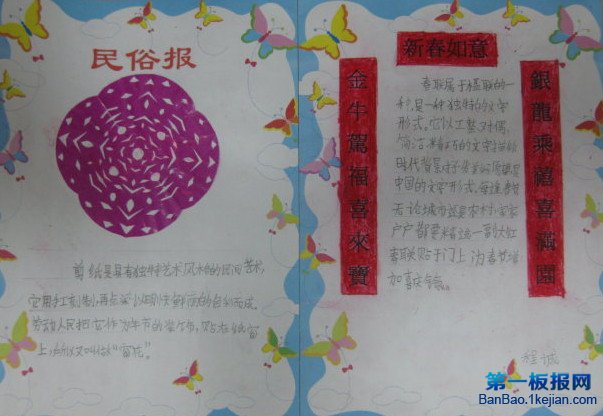 民俗报
剪纸是具有独特艺术风格的民间艺术,
劳动人民把它作为年节的
上,所以又叫作"窗花"。
新春如意
金牛駕福喜來寶
銀龍乘禧喜滿園
春联属于楹联的一
种,是一种独特的文字
形式。它以工整、对偶、
简洁、精巧的文字描绘
时代背景,抒发美好愿望,是
中国的文字形式,每逢春节
无论城市还是农村,家家
户户都要精选一副大红
春联贴于门上,为春节增
加喜庆气氛。
程诚
第一板报网
BanBao.1kejian.com